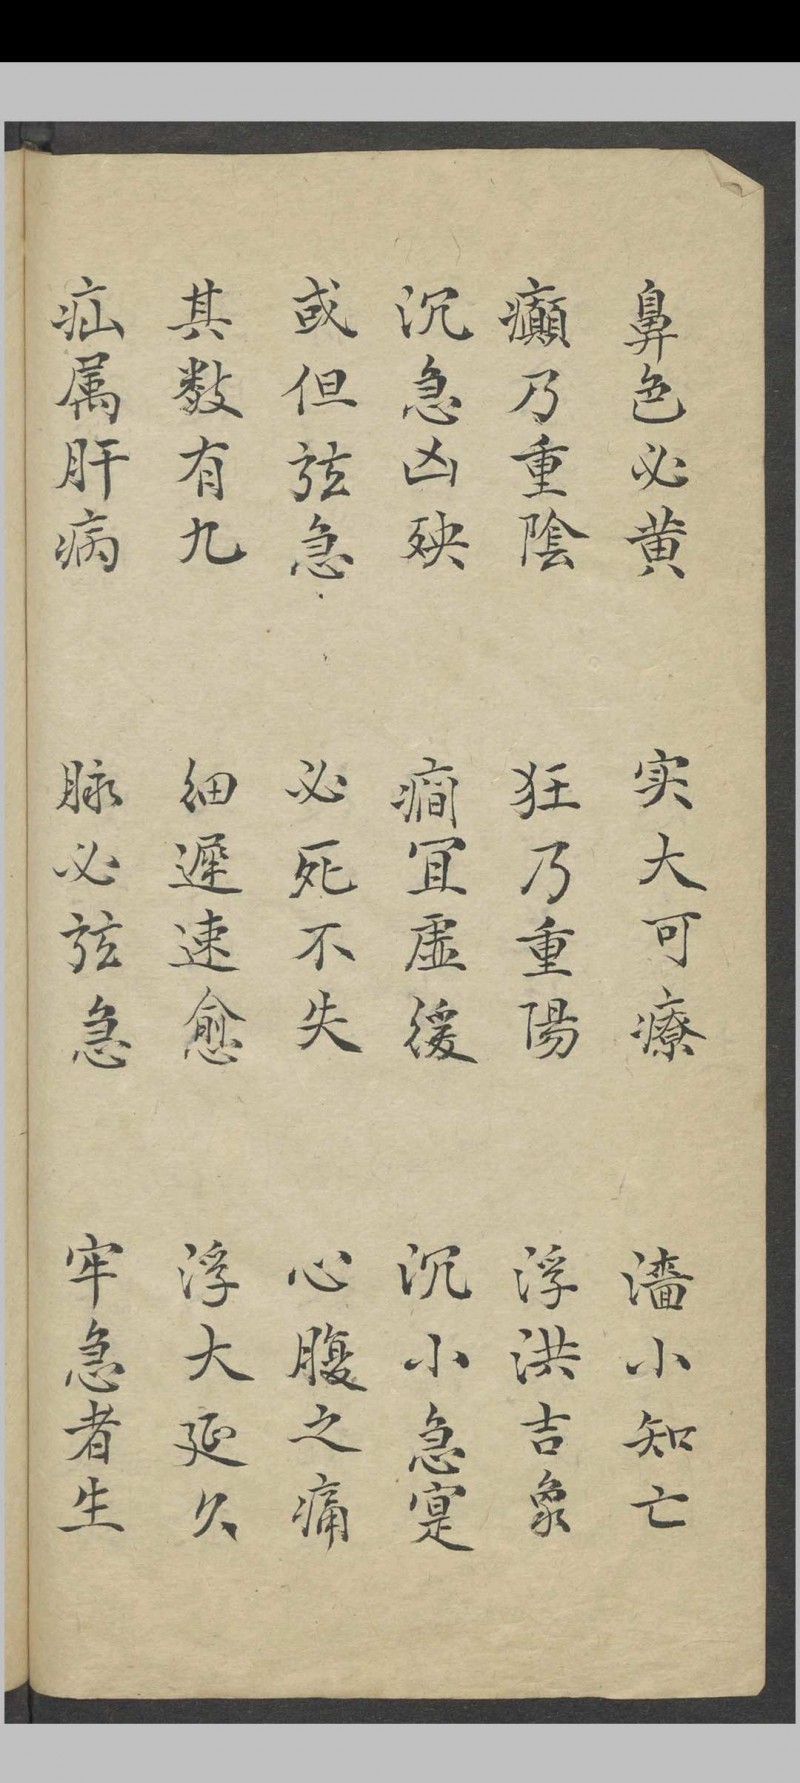 鼻色必黄　实大可療　濇小知亡
癲乃重陰　狂乃重陽　浮洪吉象
沉急凶殃　癇冝虚緩　沉小急寔
或但弦急　必死不失　心腹之痛
其数有九　细遲速愈　浮大延久
疝属肝病　脉必弦急　牢急者生